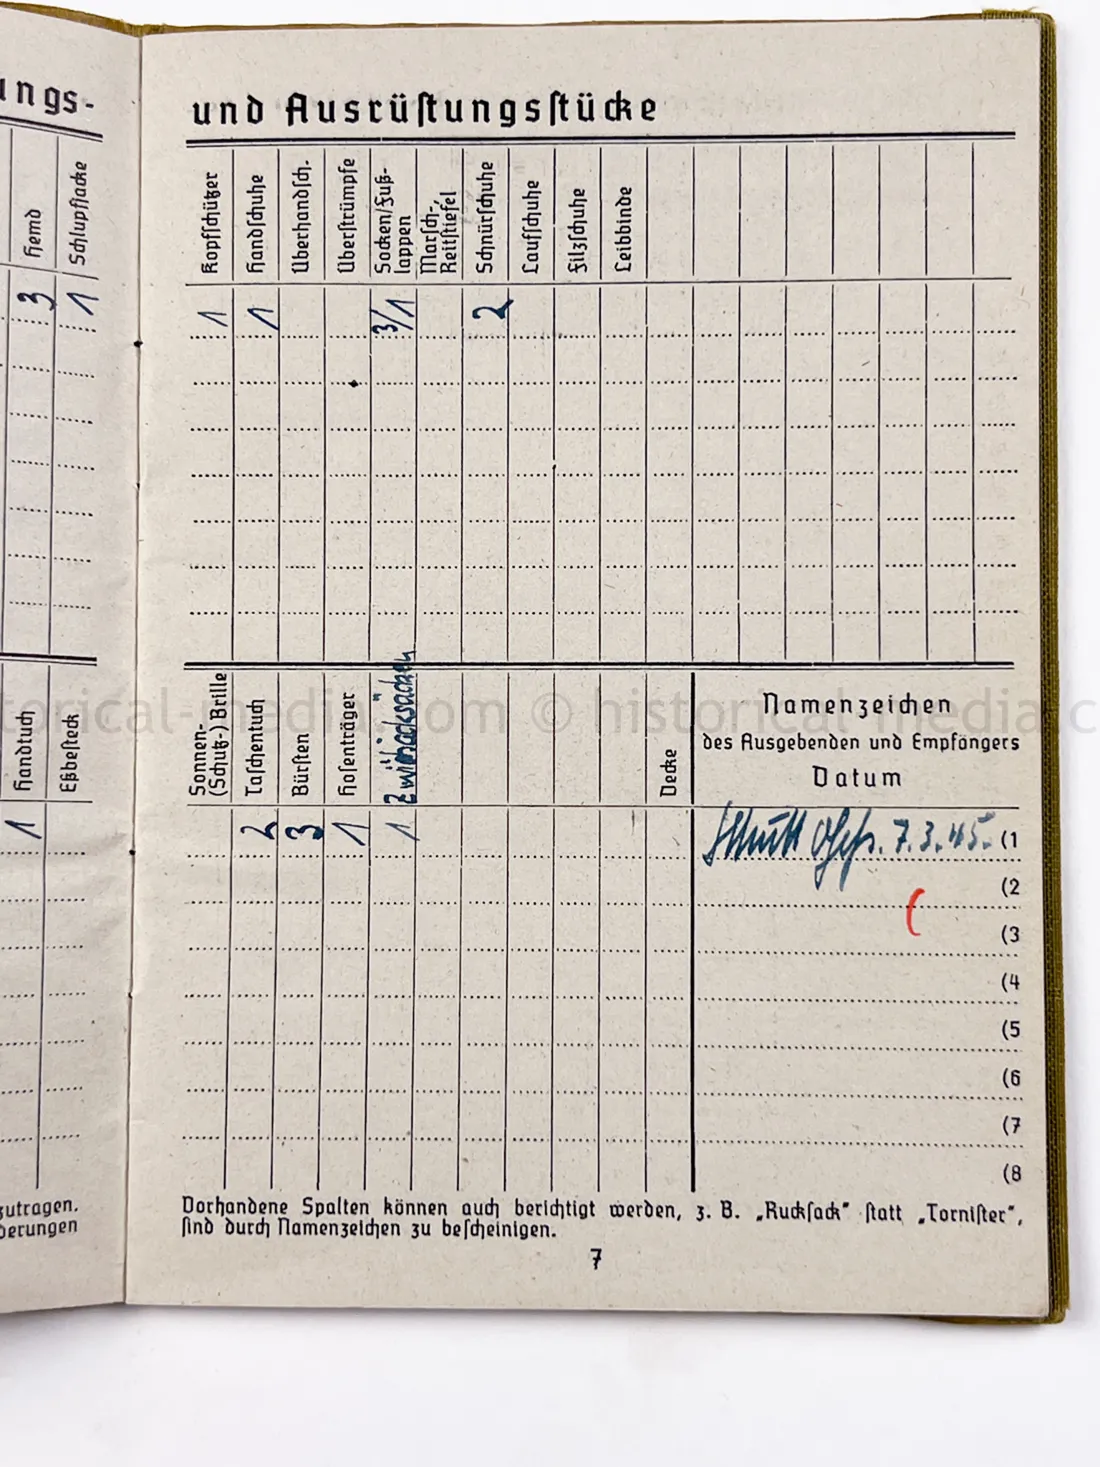 ungs-
Hemd
Schlupfjacke
3
1
Handtuch
Eßbesteck
1
zutragen.
derungen
und Ausrüstungsstücke
Kopfschützer
Handschuhe
Überhandsch.
Überstrümpfe
Socken/Fuß-
lappen
Marsch-,
Reitstiefel
Schnürschuhe
Laufschuhe
Filzschuhe
Leibbinde
1
1
3/1
2
Sonnen-
(Schutz-) Brille
Taschentuch
Bürsten
Hosenträger
Decke
Namenzeichen
des Ausgebenden und Empfängers
Datum
2
3
1
1
7.3.45. (1
(2
(3
(4
(5
(6
(7
(8
Vorhandene Spalten können auch berichtigt werden, z. B. „Rucksack" statt „Tornister",
sind durch Namenzeichen zu bescheinigen.
7
torical-media.com © historical-media.c